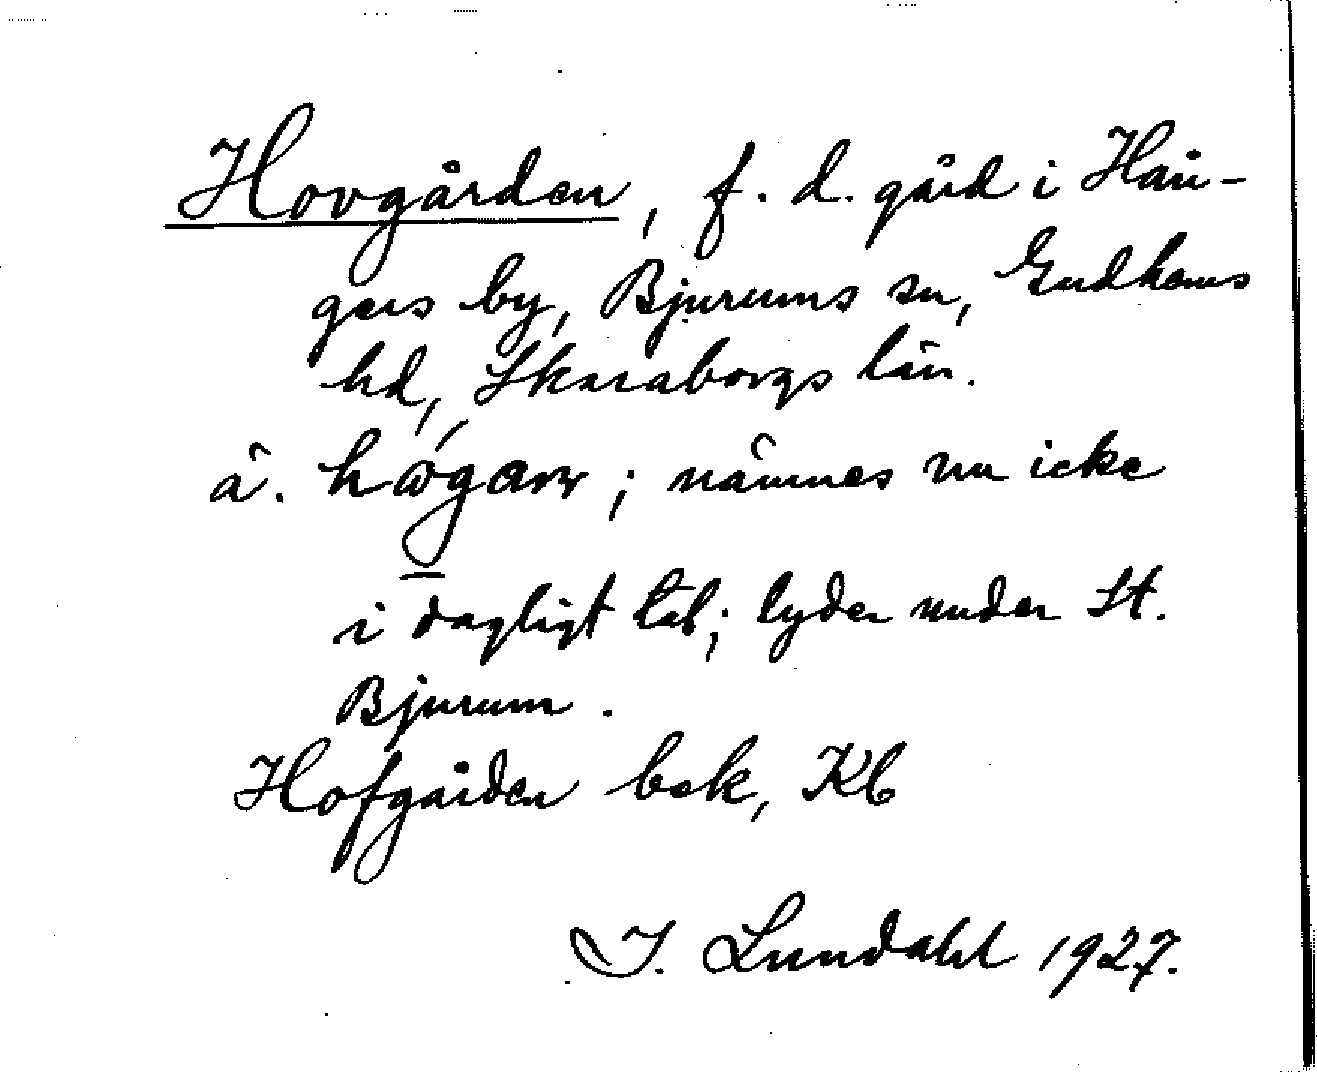 Hovgården, f. d. gård i Hån-
gers by, Bjurums sn, Gudhems
hd, Skaraborgs län.
ä. hógaɷ; nämnes nu icke
i dagligt tal; lyder under St.
Bjurum.
Hofgården bek, Kb
I. Lundahl 1927.